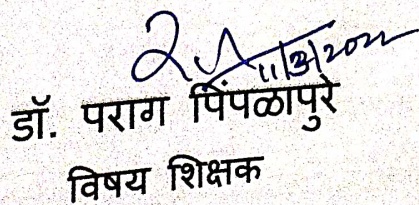 11/3/2022
डॉ. पराग पिंपळापुरे
विषय शिक्षक